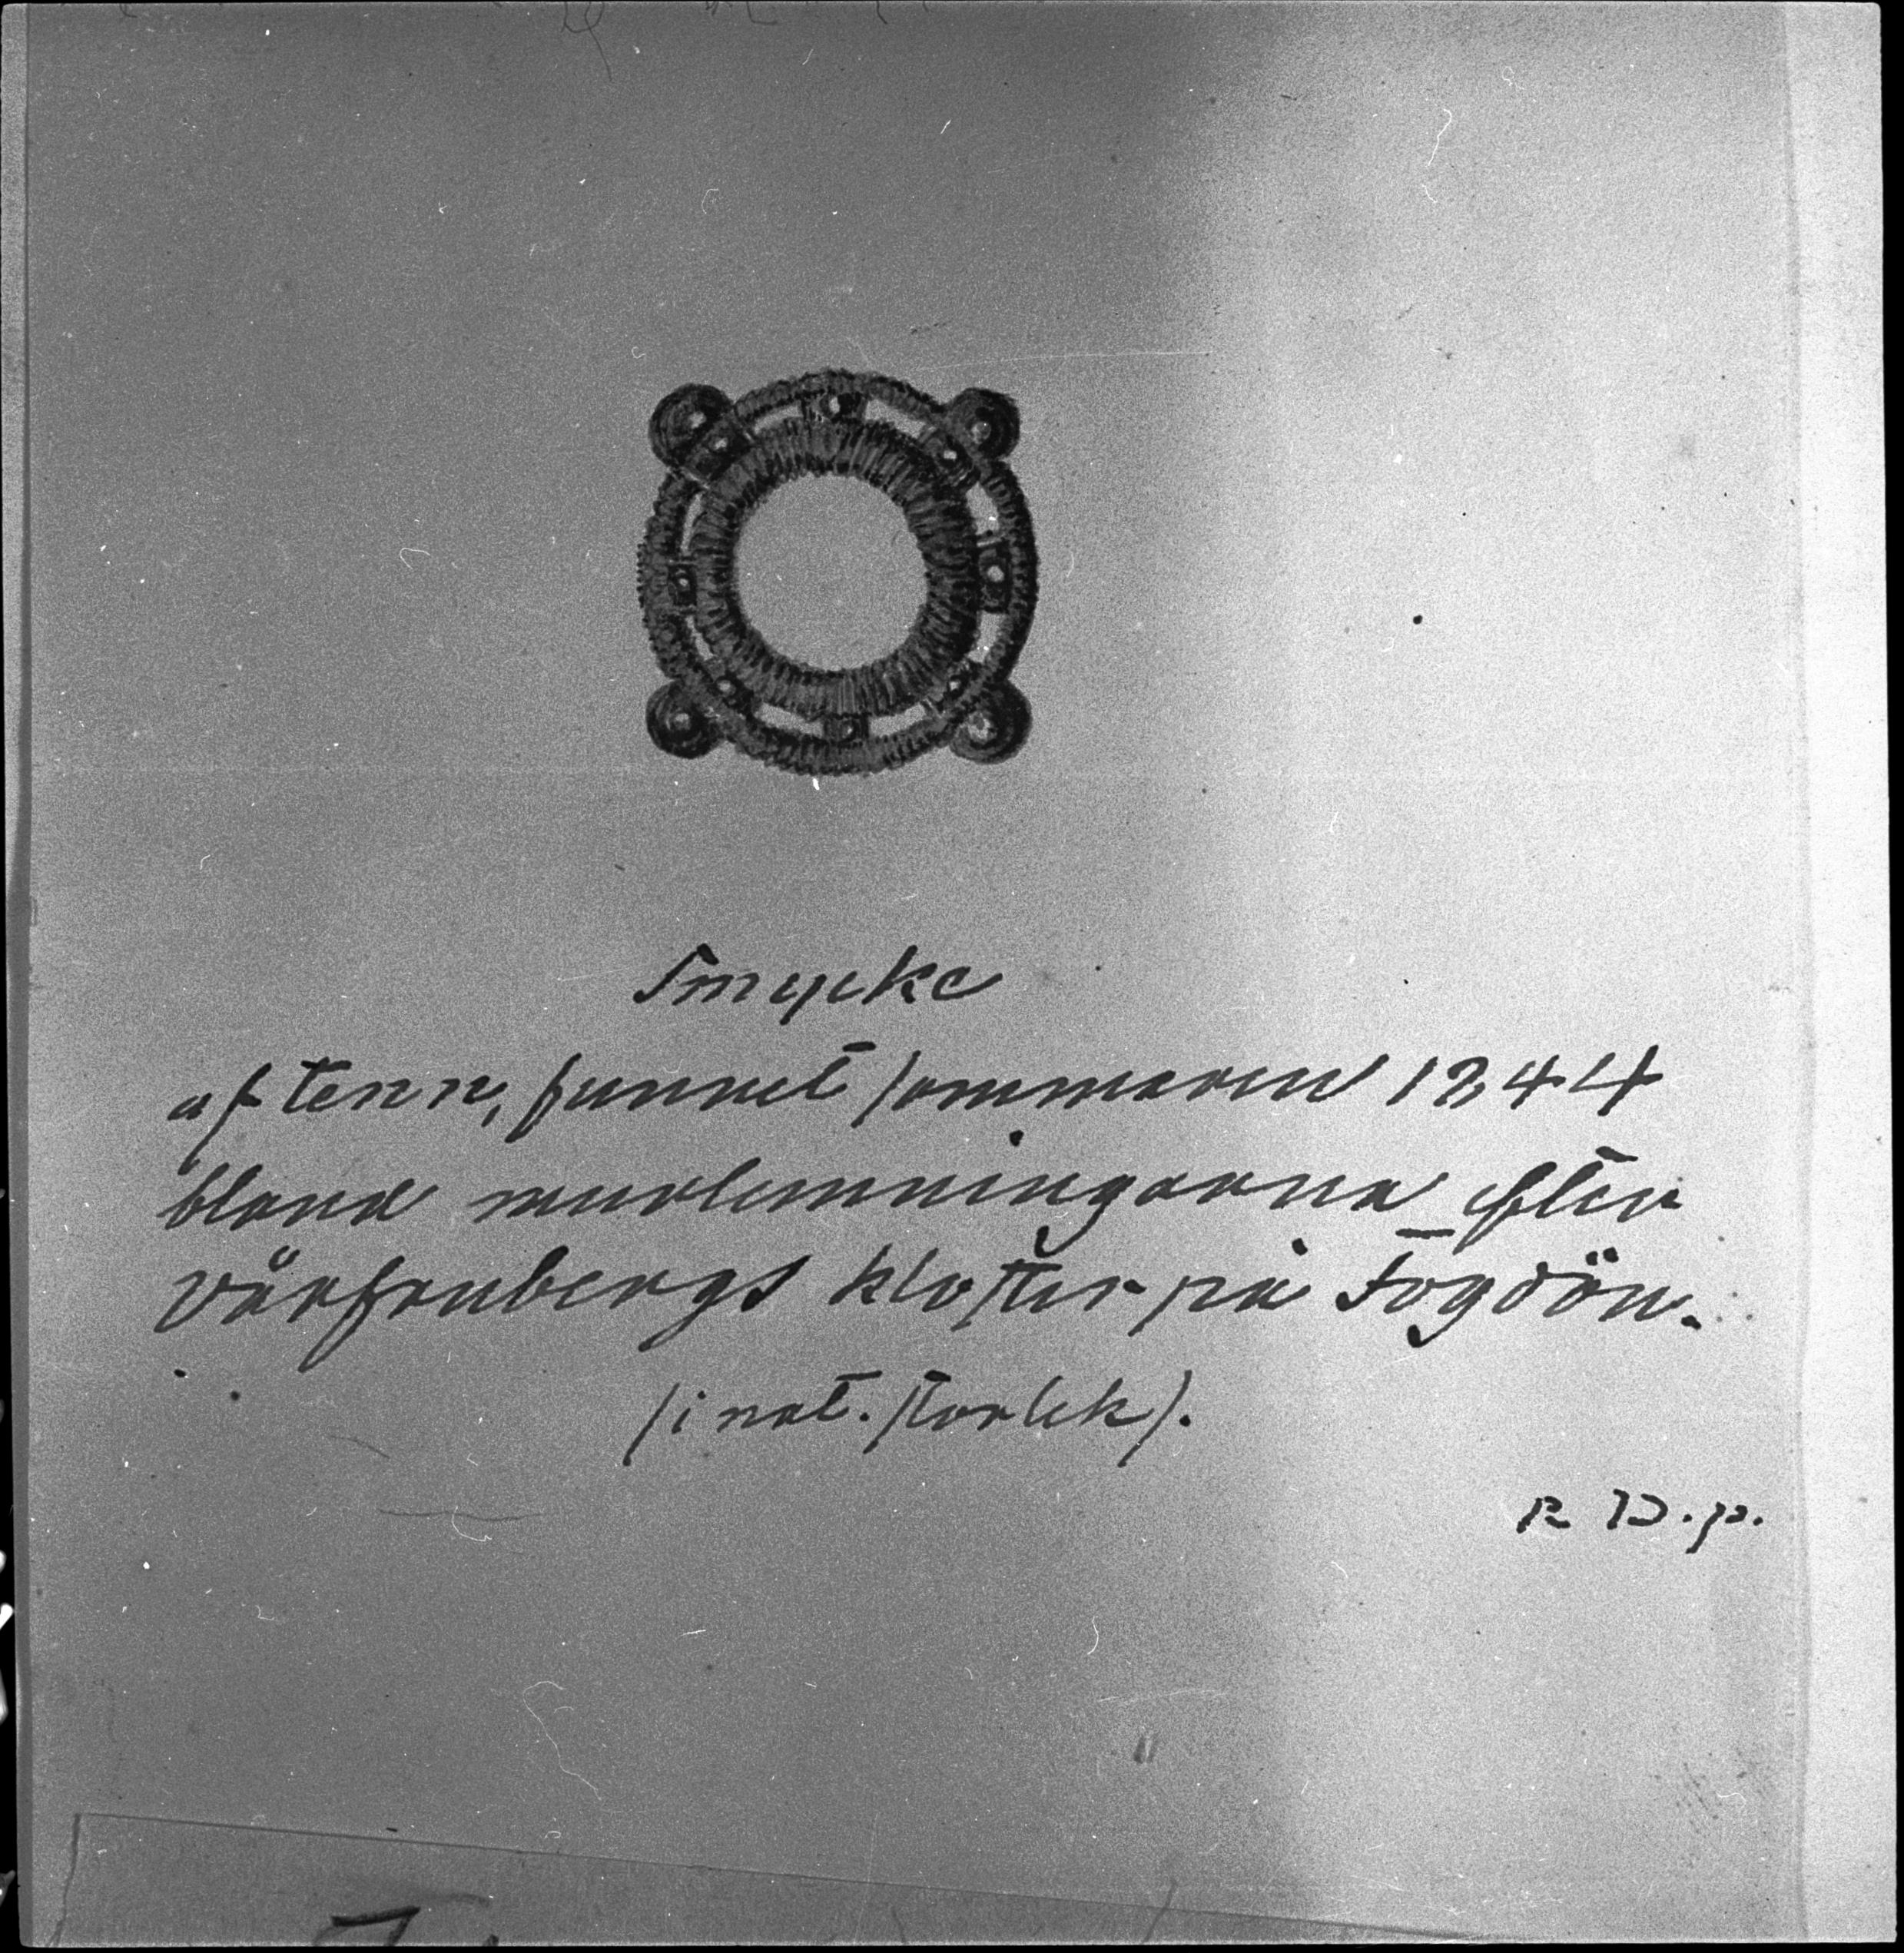 Smycke
af tenn, funnet sommaren 1844
bland murlemningarna efter
Vårfrubergs kloster på Fogdön.
(i nat. storlek).
R D. p.